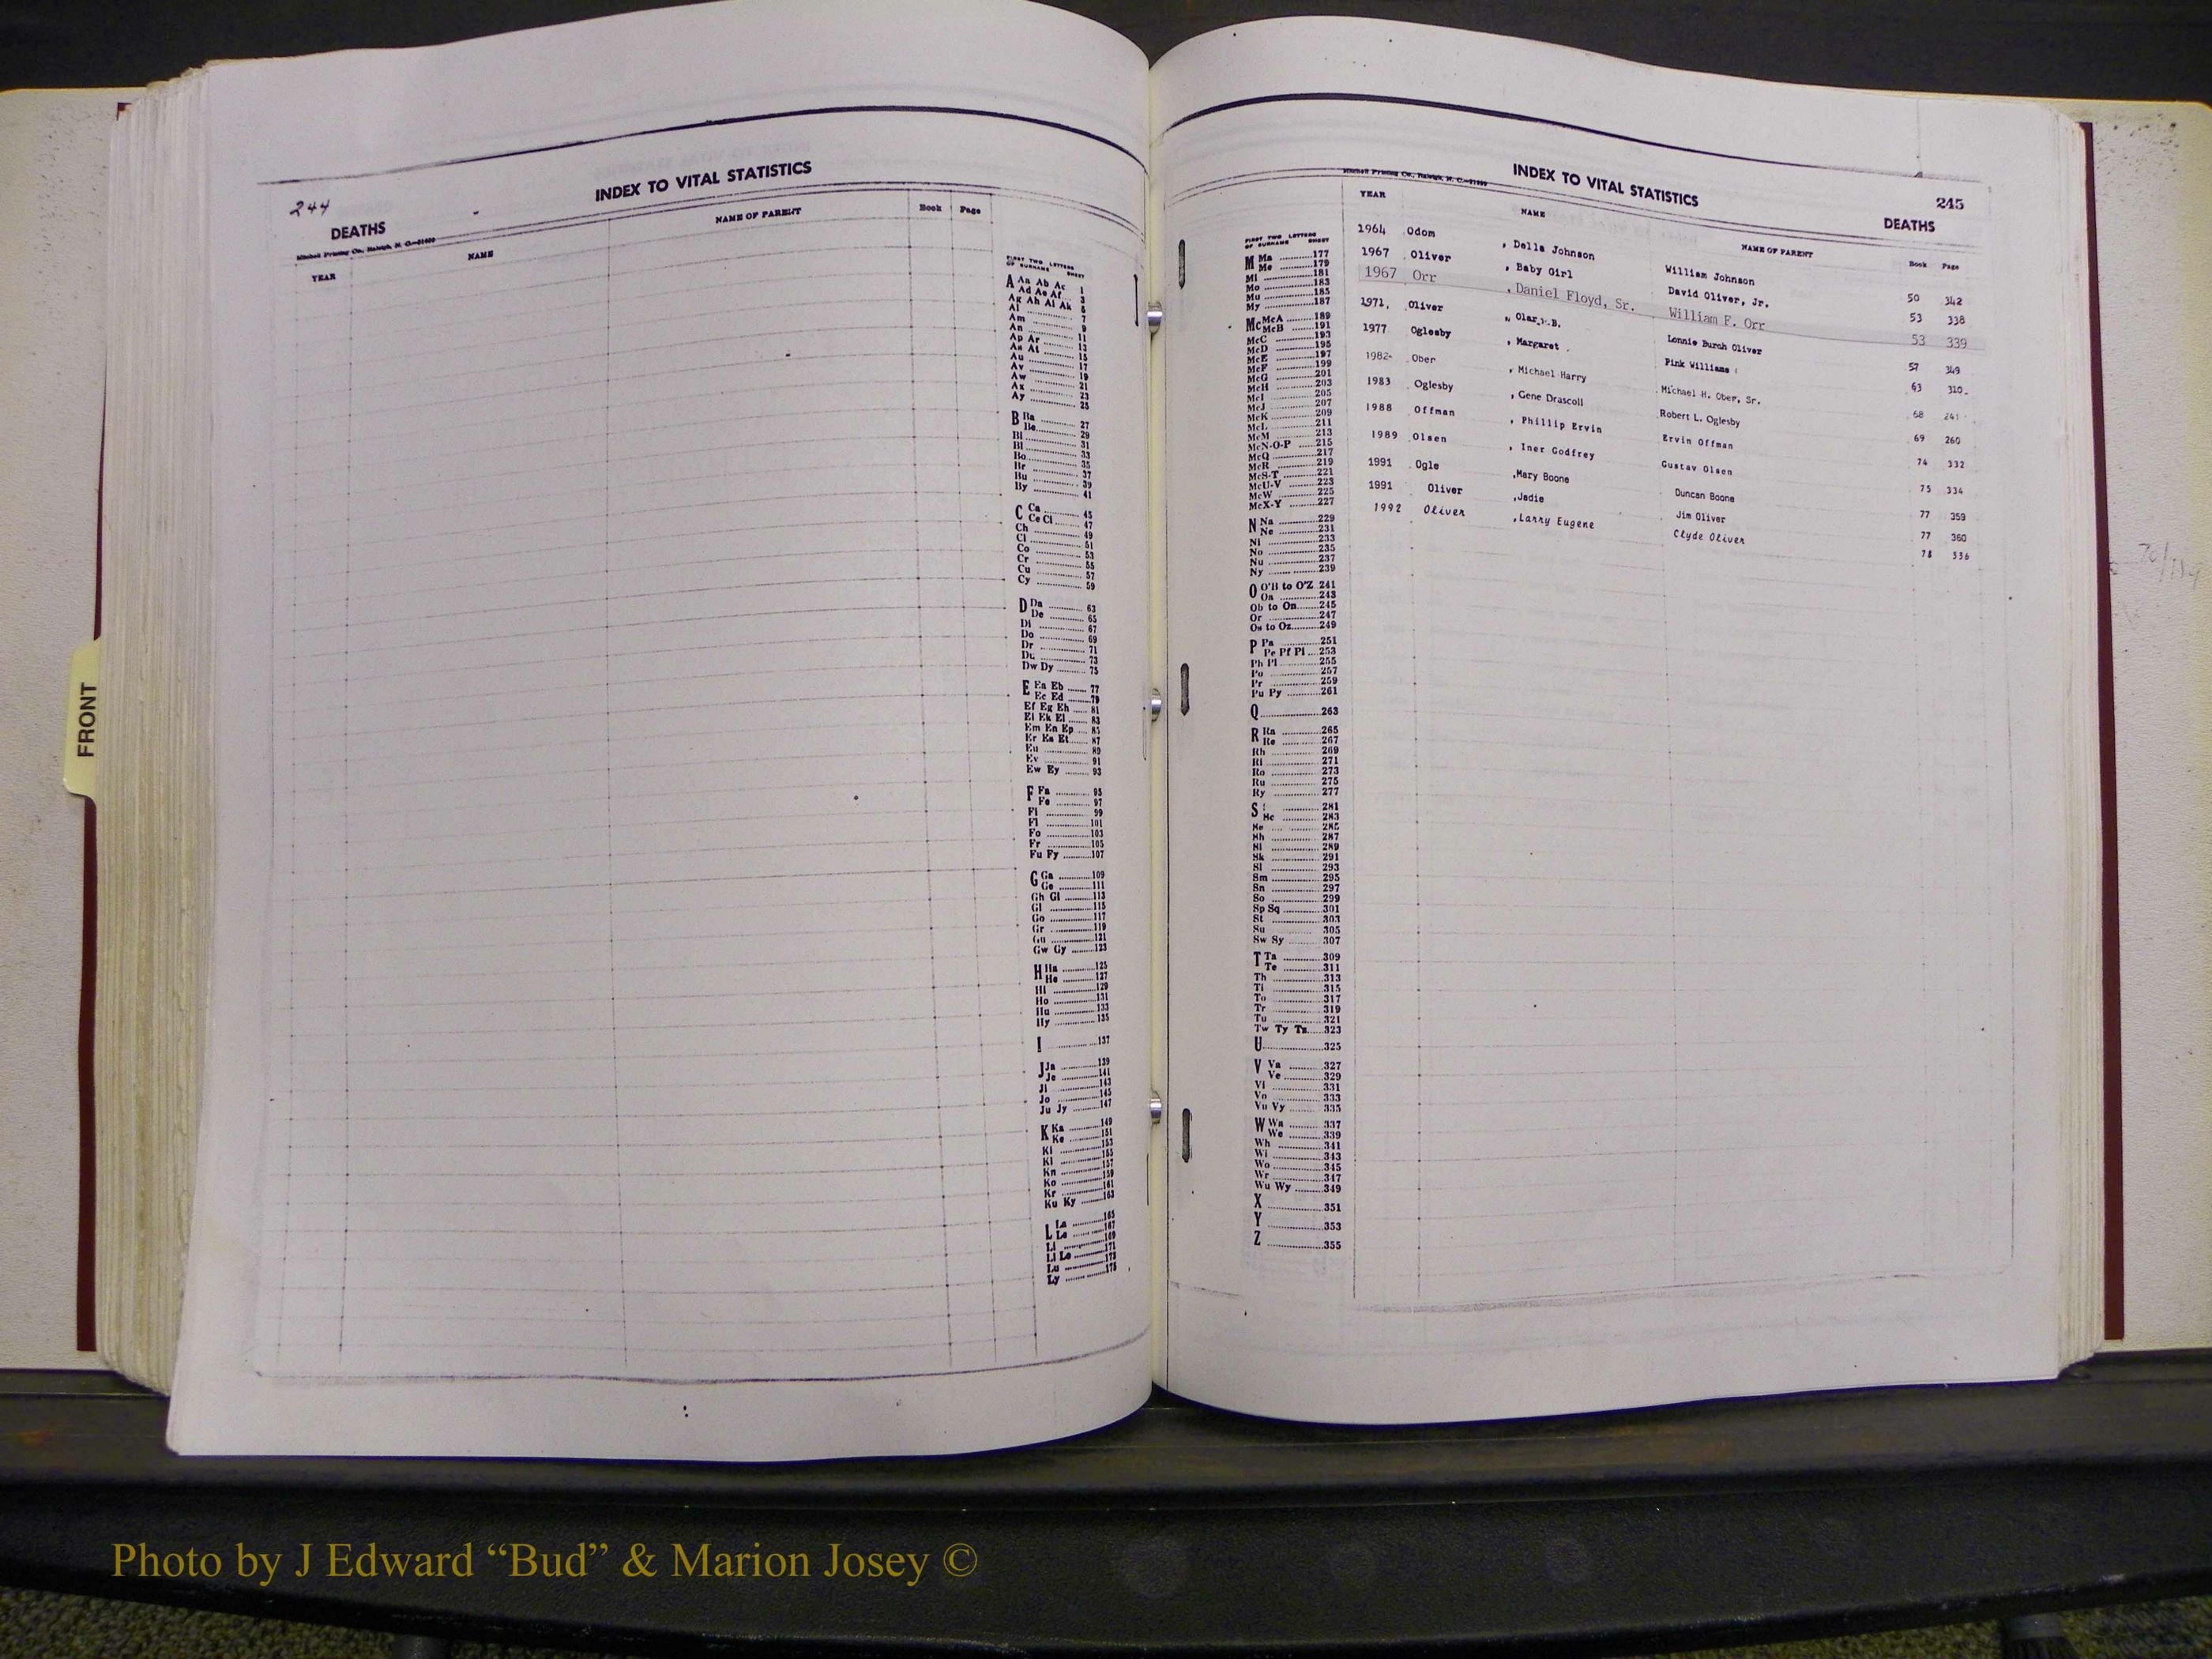 244
INDEX TO VITAL STATISTICS
DEATHS
Mitchell Printing Co., Raleigh, N. C.
YEAR NAME NAME OF PARENT Book Page
FIRST TWO LETTERS
OF SURNAME SHEET
A Aa Ab Ac 1
Ad Ae Af 3
Ag Ah Ai Ak 5
Al 7
Am 9
An 11
Ap Ar 13
As At 15
Au 17
Av 19
Aw 21
Ax 23
Ay 25
B Ba 27
Be 29
Bi 31
Bl 33
Bo 35
Br 37
Bu 39
By 41
C Ca 45
Ce Ci 47
Ch 49
Cl 51
Co 53
Cr 55
Cu 57
Cy 59
D Da 63
De 65
Di 67
Do 69
Dr 71
Du 73
Dw Dy 75
E Ea Eb 77
Ec Ed 79
Ef Eg Eh 81
Ei Ek El 83
Em En Ep 85
Er Es Et 87
Eu 89
Ev 91
Ew Ey 93
F Fa 95
Fe 97
Fi 99
Fl 101
Fo 103
Fr 105
Fu Fy 107
G Ga 109
Ge 111
Gh Gi 113
Gl 115
Go 117
Gr 119
Gu 121
Gw Gy 123
H Ha 125
He 127
Hi 129
Ho 131
Hu 133
Hy 135
I 137
J Ja 139
Je 141
Ji 143
Jo 145
Ju Jy 147
K Ka 149
Ke 151
Ki 153
Kl 155
Kn 157
Ko 159
Kr 161
Ku Ky 163
L La 165
Le 167
Li 169
Ll Lo 171
Lu 173
Ly 175
INDEX TO VITAL STATISTICS
245
DEATHS
Mitchell Printing Co., Raleigh, N. C.
YEAR NAME NAME OF PARENT Book Page
1964 Odom , Della Johnson William Johnson 50 342
1967 Oliver , Baby Girl David Oliver, Jr. 53 338
1967 Orr , Daniel Floyd, Sr. William F. Orr 53 339
1971. Oliver Lonnie Burch Oliver 57 349
1977 Oglesby , Margaret Pink Williams 63 310
1982 Ober , Michael Harry Michael H. Ober, Sr. 68 241
1983 Oglesby , Gene Drascoll Robert L. Oglesby 69 260
1988 Offman , Phillip Ervin Ervin Offman 74 332
1989 Olsen , Iner Godfrey Gustav Olsen 75 334
1991 Ogle ,Mary Boone Duncan Boone 77 359
1991 Oliver ,Jadie Jim Oliver 77 360
1992 Oliver ,Larry Eugene Clyde Oliver 78 336
FIRST TWO LETTERS
OF SURNAME SHEET
M Ma 177
Me 179
Mi 181
Mo 183
Mu 185
My 187
Mc McA 189
McB 191
McC 193
McD 195
McE 197
McF 199
McG 201
McH 203
McI 205
McJ 207
McK 209
McL 211
McM 213
McN-O-P 215
McQ 217
McR 219
McS-T 221
McU-V 223
McW 225
McX-Y 227
N Na 229
Ne 231
Ni 233
No 235
Nu 237
Ny 239
O O'B to O'Z 241
Oa 243
Ob to On 245
Or 247
Os to Oz 249
P Pa 251
Pe Pf Pi 253
Ph Pl 255
Po 257
Pr 259
Pu Py 261
Q 263
R Ra 265
Re 267
Rh 269
Ri 271
Ro 273
Ru 275
Ry 277
S 281
Sc 283
Se 285
Sh 287
Si 289
Sk 291
Sl 293
Sm 295
Sn 297
So 299
Sp Sq 301
St 303
Su 305
Sw Sy 307
T Ta 309
Te 311
Th 313
Ti 315
To 317
Tr 319
Tu 321
Tw Ty Tz 323
U 325
V Va 327
Ve 329
Vi 331
Vo 333
Vu Vy 335
W Wa 337
We 339
Wh 341
Wi 343
Wo 345
Wr 347
Wu Wy 349
X 351
Y 353
Z 355
FRONT
Photo by J Edward “Bud” & Marion Josey ©